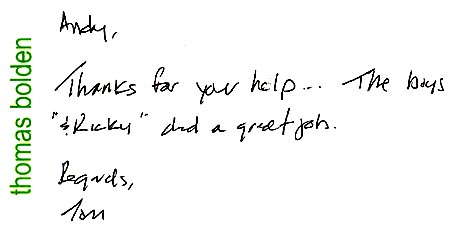 thomas bolden
Andy,
Thanks for your help... The boys
"&Ricky" did a great job.
Regards,
Tom